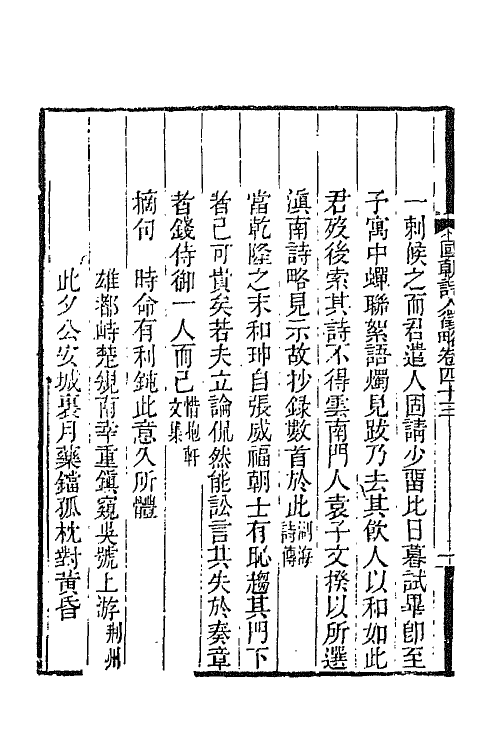 國朝詩人徵略卷四十三
一刺候之而君遣人固請少畱比日暮試畢卽至
子寓中蟬聯絮語燭見跋乃去其飲人以和如此
君歿後索其詩不得雲南門人袁子文揆以所選
滇南詩略見示故抄錄數首於此湖海詩傳
當乾隆之末和珅自張威福朝士有恥趨其門下
者已可貴矣若夫立論侃然能訟言其失於奏章
者錢侍御一人而已惜抱軒文集
摘句 時命有利鈍此意久所體
雄都峙楚親南幸重鎮窺吳號上游荆州
此夕公安城裏月藥鐺孤枕對黃昏